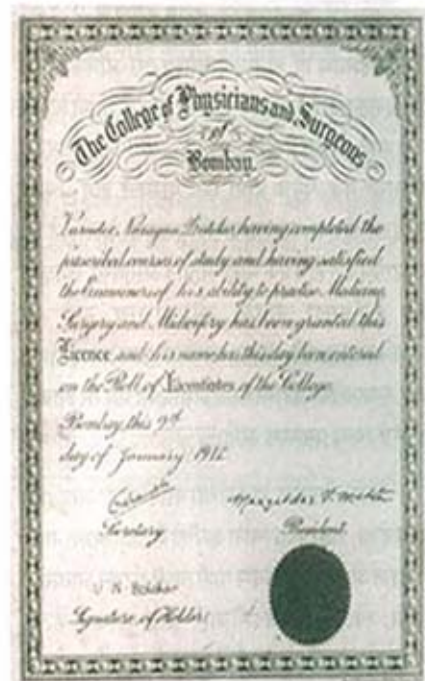 The College of Physicians and Surgeons
of
Bombay.
Narayan having completed the
prescribed courses of study and having satisfied
the Examiners of his ability to practise Medicine
Surgery and Midwifery has been granted this
Licence and his name has this day been entered
on the Roll of Licentiates of the College
Bombay this 9th
day of January 1912
V. Mehta
Secretary President.
V N
Signature of Holder